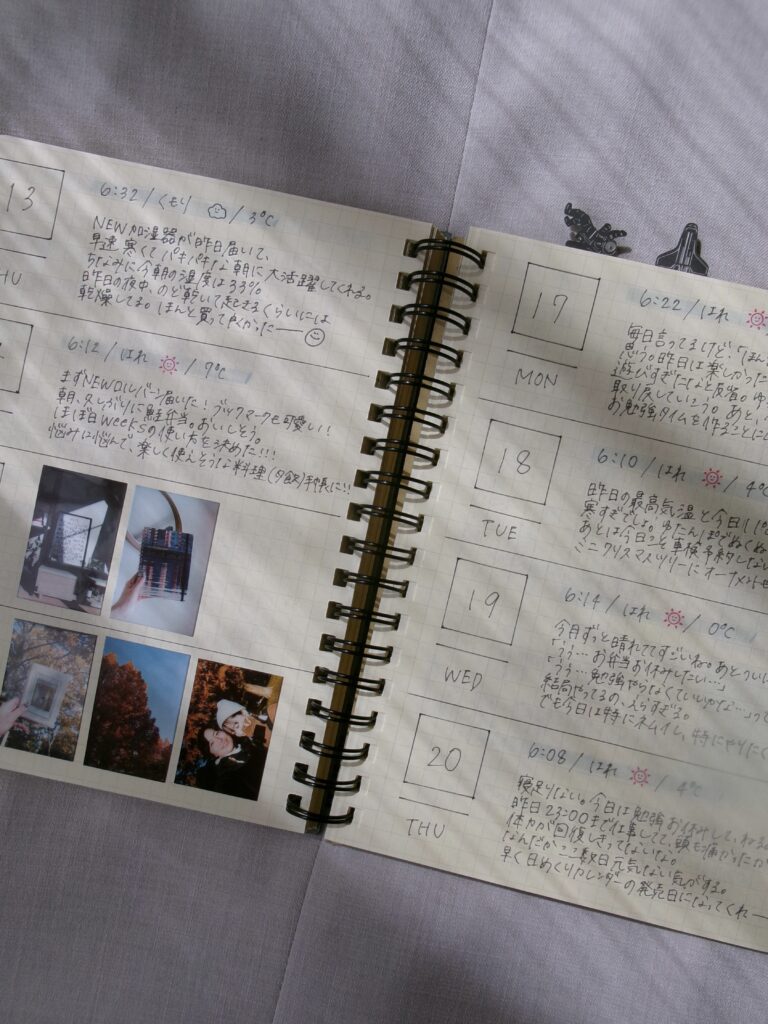 13
THU
6:32 / くもり / 3℃
NEW加湿器が昨日届いて、
早速 寒くてパキパキな朝に大活躍してくれる。
ちなみに今朝の湿度は33%。
昨日の夜中、のど乾いて起きるくらいには
乾燥してる。ほんと買って良かったー
6:12 / はれ / 7℃
まずNEWロルバーン届いた！ブックマークも可愛い！
朝、久しぶりに鮭弁当。おいしそう。
ほぼ日weeksの使い方を決めた!!!
悩みに悩んで、楽しく使えそうな料理(夕飯)手帳に!!
17
MON
6:22 / はれ
毎日言ってるけど、「ほん
思う。昨日は楽しかった
遊びすぎたなと反省。ゆ
取り戻していこう。あと、
お勉強タイムを作ることにし
18
TUE
6:10 / はれ / 4℃
昨日の最高気温と今日11℃
寒すぎでしょ。ゆたんぽでぬくぬ
あとは今日っと車検予約しない
ミニクリスマスツリーにオーナメント
19
WED
6:14 / はれ / 0℃
今日ずっと晴れててすごいね。あとつい
「うぅ…お弁当お休みしたい…」
「うぅ…勉強やらなくていいかな…」って
結局やってるの、えらすぎる。
でも今日は特にネムイし、特にやりたく
20
THU
6:08 / はれ / 4℃
寝足りない。今日は勉強お休みして、
昨日23:00まで仕事してて、頭も痛かったか
体力が回復しきってないな。
なんだかここ数日元気ない気がする。
早く日めくりカレンダーの発売日になってくれー